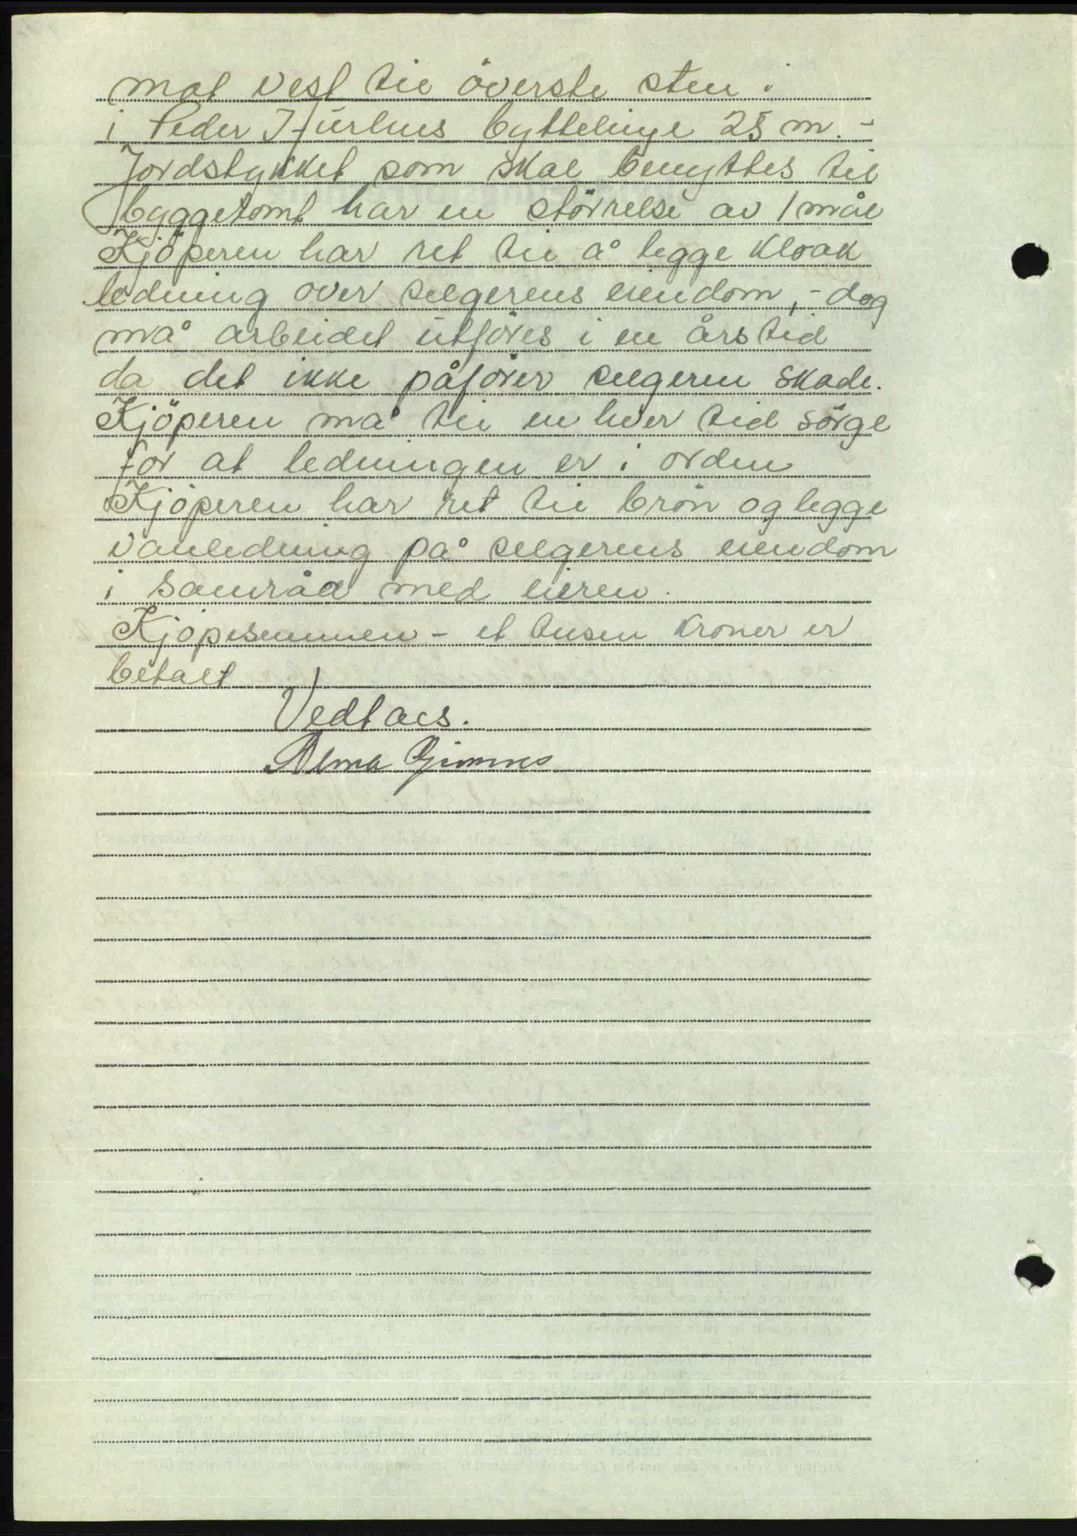 mot vest til överste sten i
i Peder byttelinje 25 m. -
Jordstykket som skal benyttes til
byggetomt har en störrelse av 1 mål
Kjöperen har ret til å legge kloak
ledning over selgerens eiendom, - dog
må arbeidet utföres i en årstid
da det ikke påförer selgeren skade.
Kjöperen må til en hver tid sörge
for at ledningen er i orden
Kjöperen har ret til brön og legge
vanledning på selgerens eiendom
i samråd med eieren.
Kjöpesummen - et tusen kroner er
betalt
Vedtaes.
Alma Gimnes